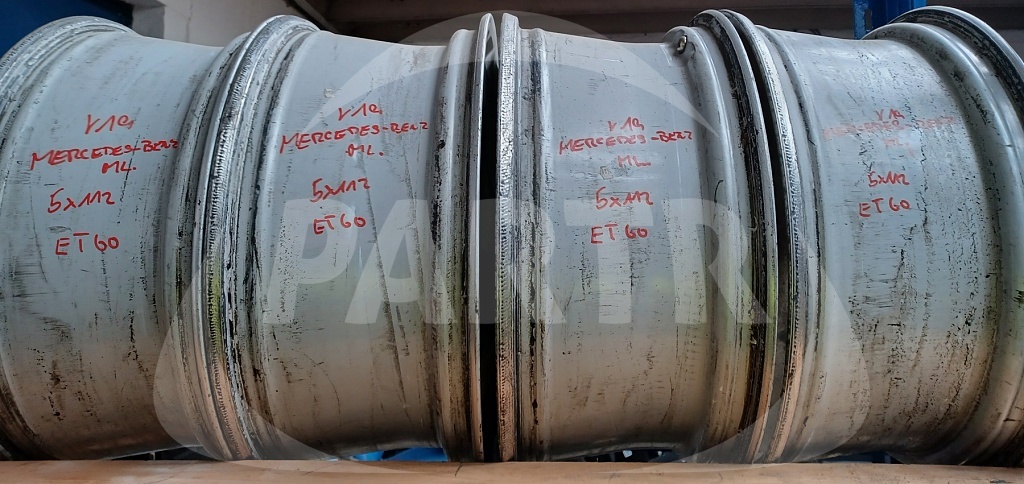 V19
MERCEDES-BENZ
ML.
5x112
ET60
V19
MERCEDES-BENZ
ML.
5x112
ET60
V19
MERCEDES-BENZ
ML
5x112
ET60
V19
MERCEDES-BENZ
ML
5x112
ET60
PARTR